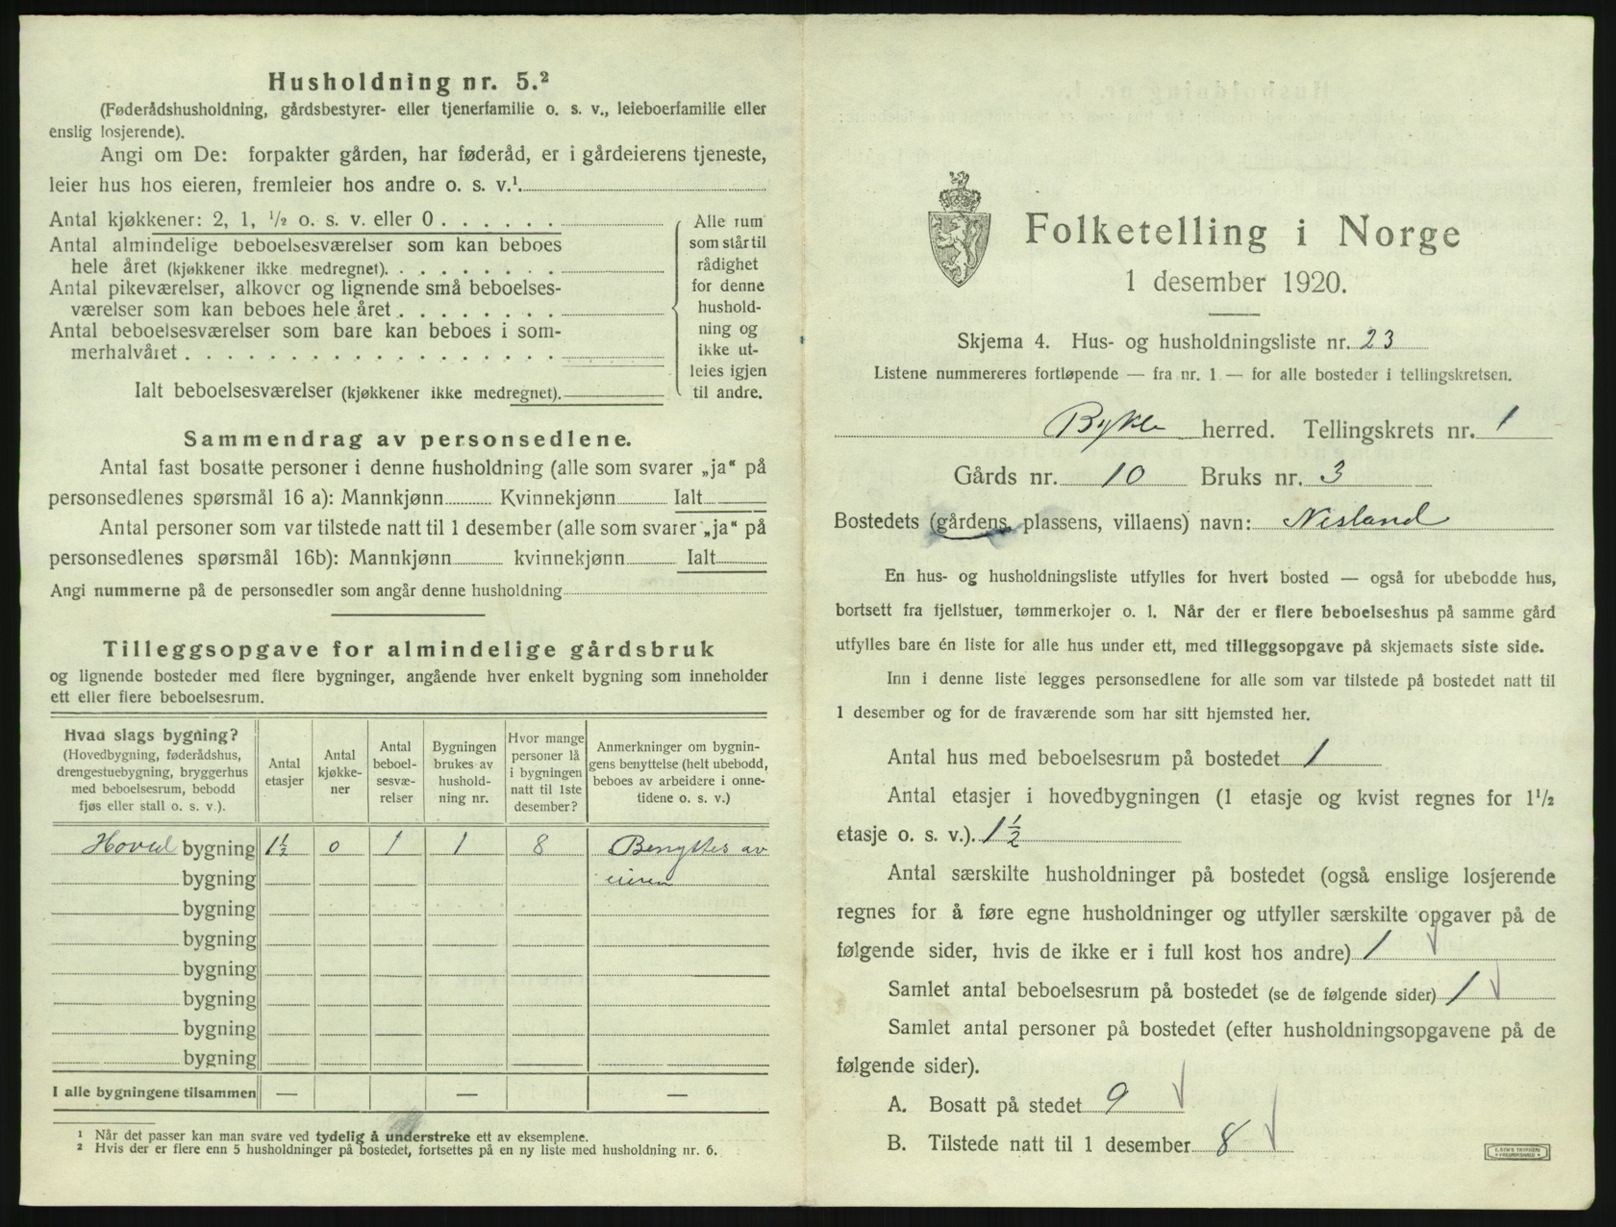 Husholdning nr. 5.²
(Føderådshusholdning, gårdsbestyrer- eller tjenerfamilie o. s. v., leieboerfamilie eller
enslig losjerende).
Angi om De: forpakter gården, har føderåd, er i gårdeierens tjeneste,
leier hus hos eieren, fremleier hos andre o. s. v.¹
Antal kjøkkener: 2, 1, ½ o. s. v. eller 0 . . . . . .
Antal almindelige beboelsesværelser som kan beboes
hele året (kjøkkener ikke medregnet). . . . . . . . .
Antal pikeværelser, alkover og lignende små beboelses-
værelser som kan beboes hele året . . . . . . . .
Antal beboelsesværelser som bare kan beboes i som-
merhalvåret . . . . . . . . . . . . . . . . . .
Ialt beboelsesværelser (kjøkkener ikke medregnet).
Alle rum
som står til
rådighet
for denne
hushold-
ning og
ikke ut-
leies igjen
til andre.
Sammendrag av personsedlene.
Antal fast bosatte personer i denne husholdning (alle som svarer „ja“ på
personsedlenes spørsmål 16 a): Mannkjønn Kvinnekjønn Ialt
Antal personer som var tilstede natt til 1 desember (alle som svarer „ja“ på
personsedlenes spørsmål 16b): Mannkjønn kvinnekjønn Ialt
Angi nummerne på de personsedler som angår denne husholdning
Tilleggsopgave for almindelige gårdsbruk
og lignende bosteder med flere bygninger, angående hver enkelt bygning som inneholder
ett eller flere beboelsesrum.
Hvad slags bygning?
(Hovedbygning, føderådshus,
drengestuebygning, bryggerhus
med beboelsesrum, bebodd
fjøs eller stall o. s. v.).
Antal
etasjer
Antal
kjøkke-
ner
Antal
beboel-
sesvæ-
relser
Bygningen
brukes av
hushold-
ning nr.
Hvor mange
personer lå
i bygningen
natt til 1ste
desember?
Anmerkninger om bygnin-
gens benyttelse (helt ubebodd,
beboes av arbeidere i onne-
tidene o. s. v.)
Hoved bygning 1½ 0 1 1 8 Benyttes av
bygning eieren
bygning
bygning
bygning
bygning
bygning
bygning
I alle bygningene tilsammen — — —
¹ Når det passer kan man svare ved tydelig å understreke ett av eksemplene.
² Hvis der er flere enn 5 husholdninger på bostedet, fortsettes på en ny liste med husholdning nr. 6.
Folketelling i Norge
1 desember 1920.
Skjema 4. Hus- og husholdningsliste nr. 23
Listene nummereres fortløpende — fra nr. 1 — for alle bosteder i tellingskretsen.
Bykle herred. Tellingskrets nr. 1
Gårds nr. 10 Bruks nr. 3
Bostedets (gårdens, plassens, villaens) navn: Nesland
En hus- og husholdningsliste utfylles for hvert bosted — også for ubebodde hus,
bortsett fra fjellstuer, tømmerkojer o. l. Når der er flere beboelseshus på samme gård
utfylles bare én liste for alle hus under ett, med tilleggsopgave på skjemaets siste side.
Inn i denne liste legges personsedlene for alle som var tilstede på bostedet natt til
1 desember og for de fraværende som har sitt hjemsted her.
Antal hus med beboelsesrum på bostedet 1
Antal etasjer i hovedbygningen (1 etasje og kvist regnes for 1½
etasje o. s. v.). 1½
Antal særskilte husholdninger på bostedet (også enslige losjerende
regnes for å føre egne husholdninger og utfyller særskilte opgaver på de
følgende sider, hvis de ikke er i full kost hos andre) 1
Samlet antal beboelsesrum på bostedet (se de følgende sider) 1
Samlet antal personer på bostedet (efter husholdningsopgavene på de
følgende sider).
A. Bosatt på stedet 9
B. Tilstede natt til 1 desember 8